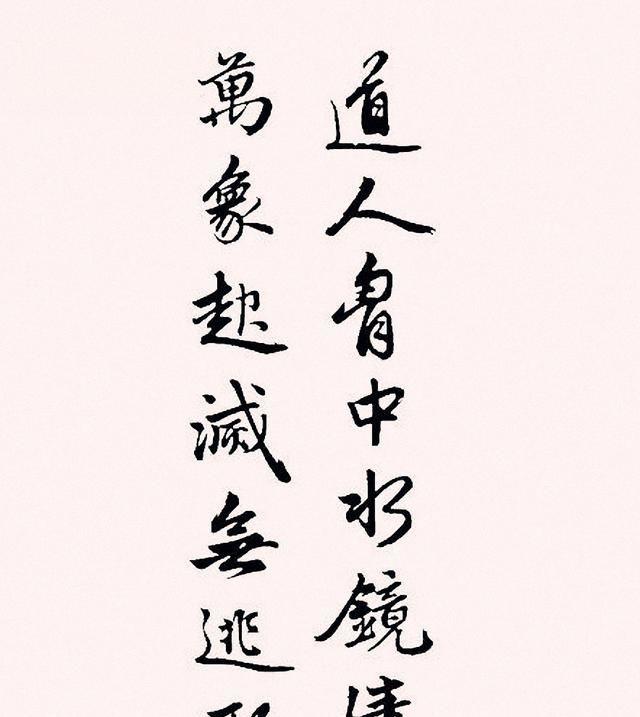 道人胷中水鏡清
萬象起滅無逃